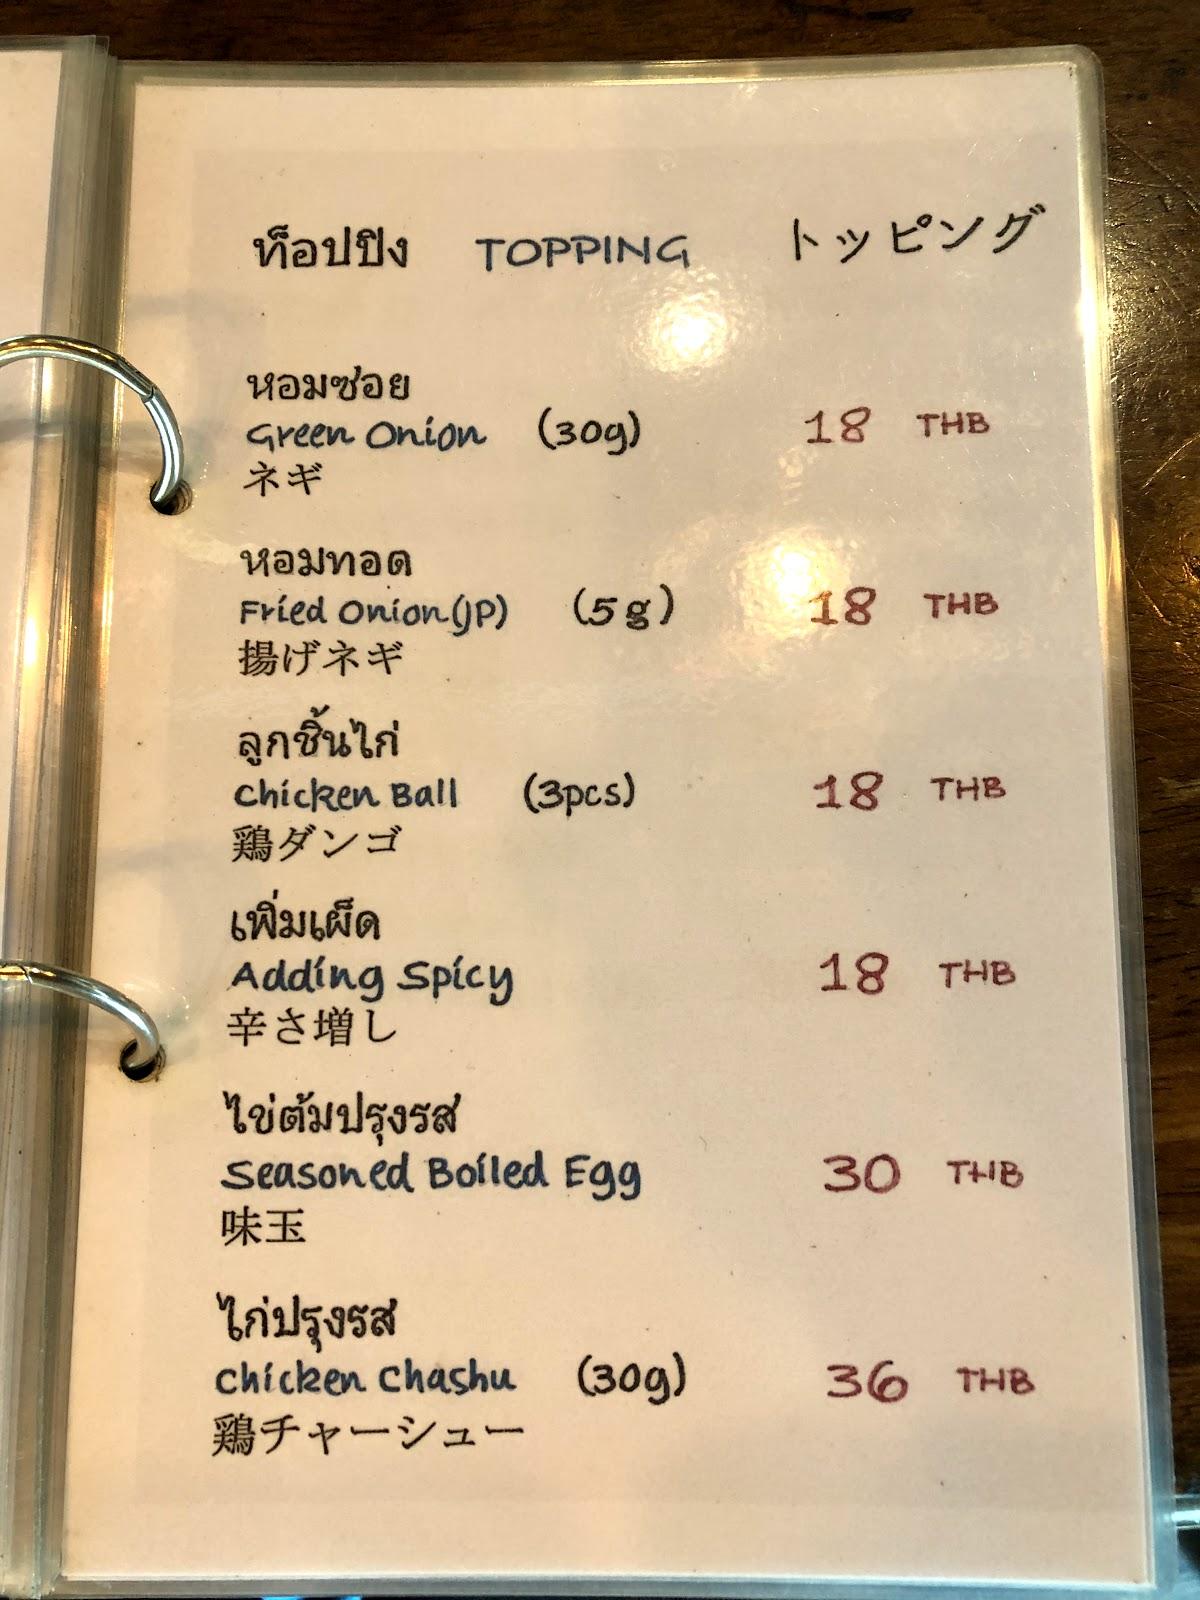 ท็อปปิง TOPPING トッピング
หอมซอย
Green Onion (30g) 18 THB
ネギ
หอมทอด
Fried Onion(JP) (5g) 18 THB
揚げネギ
ลูกชิ้นไก่
Chicken Ball (3pcs) 18 THB
鶏ダンゴ
เพิ่มเผ็ด
Adding Spicy 18 THB
辛さ増し
ไข่ต้มปรุงรส
Seasoned Boiled Egg 30 THB
味玉
ไก่ปรุงรส
Chicken Chashu (30g) 36 THB
鶏チャーシュー